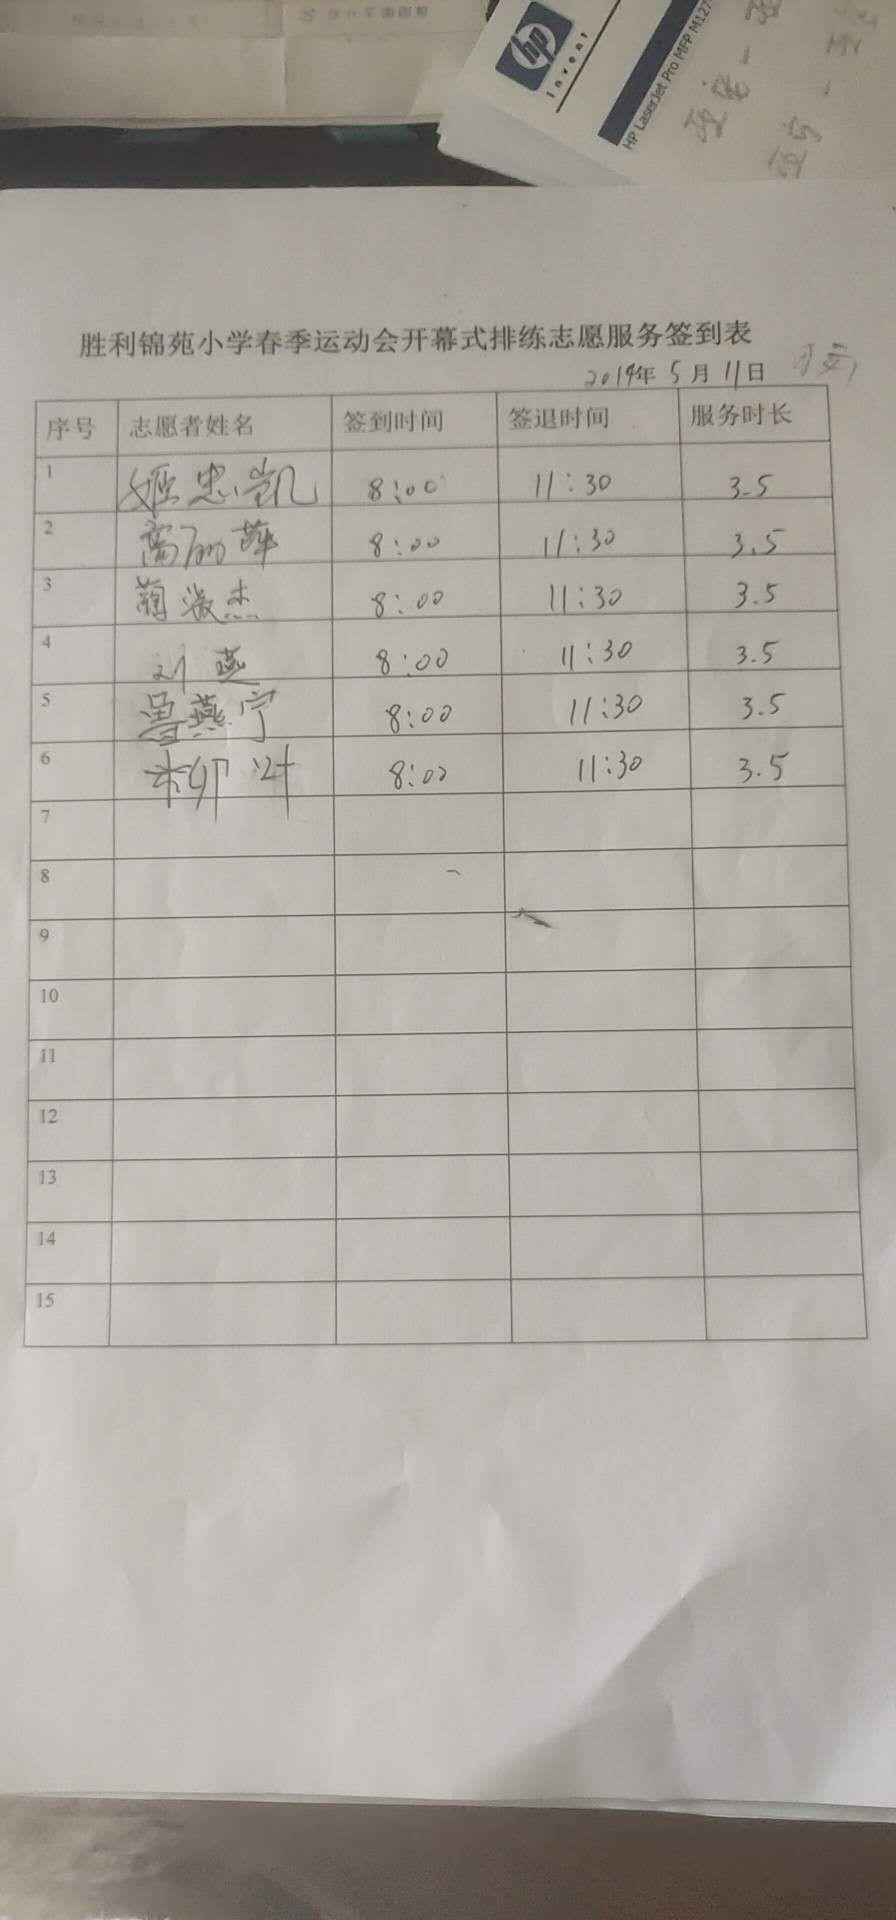 hp
invent
HP LaserJet Pro MFP M127
胜利锦苑小学春季运动会开幕式排练志愿服务签到表
2019年 5月 11日
序号 志愿者姓名 签到时间 签退时间 服务时长
1 姬忠凯 8:00 11:30 3.5
2 高丽萍 8:00 11:30 3.5
3 蔺淑杰 8:00 11:30 3.5
4 刘燕 8:00 11:30 3.5
5 鲁燕宁 8:00 11:30 3.5
6 8:00 11:30 3.5
7
8
9
10
11
12
13
14
15